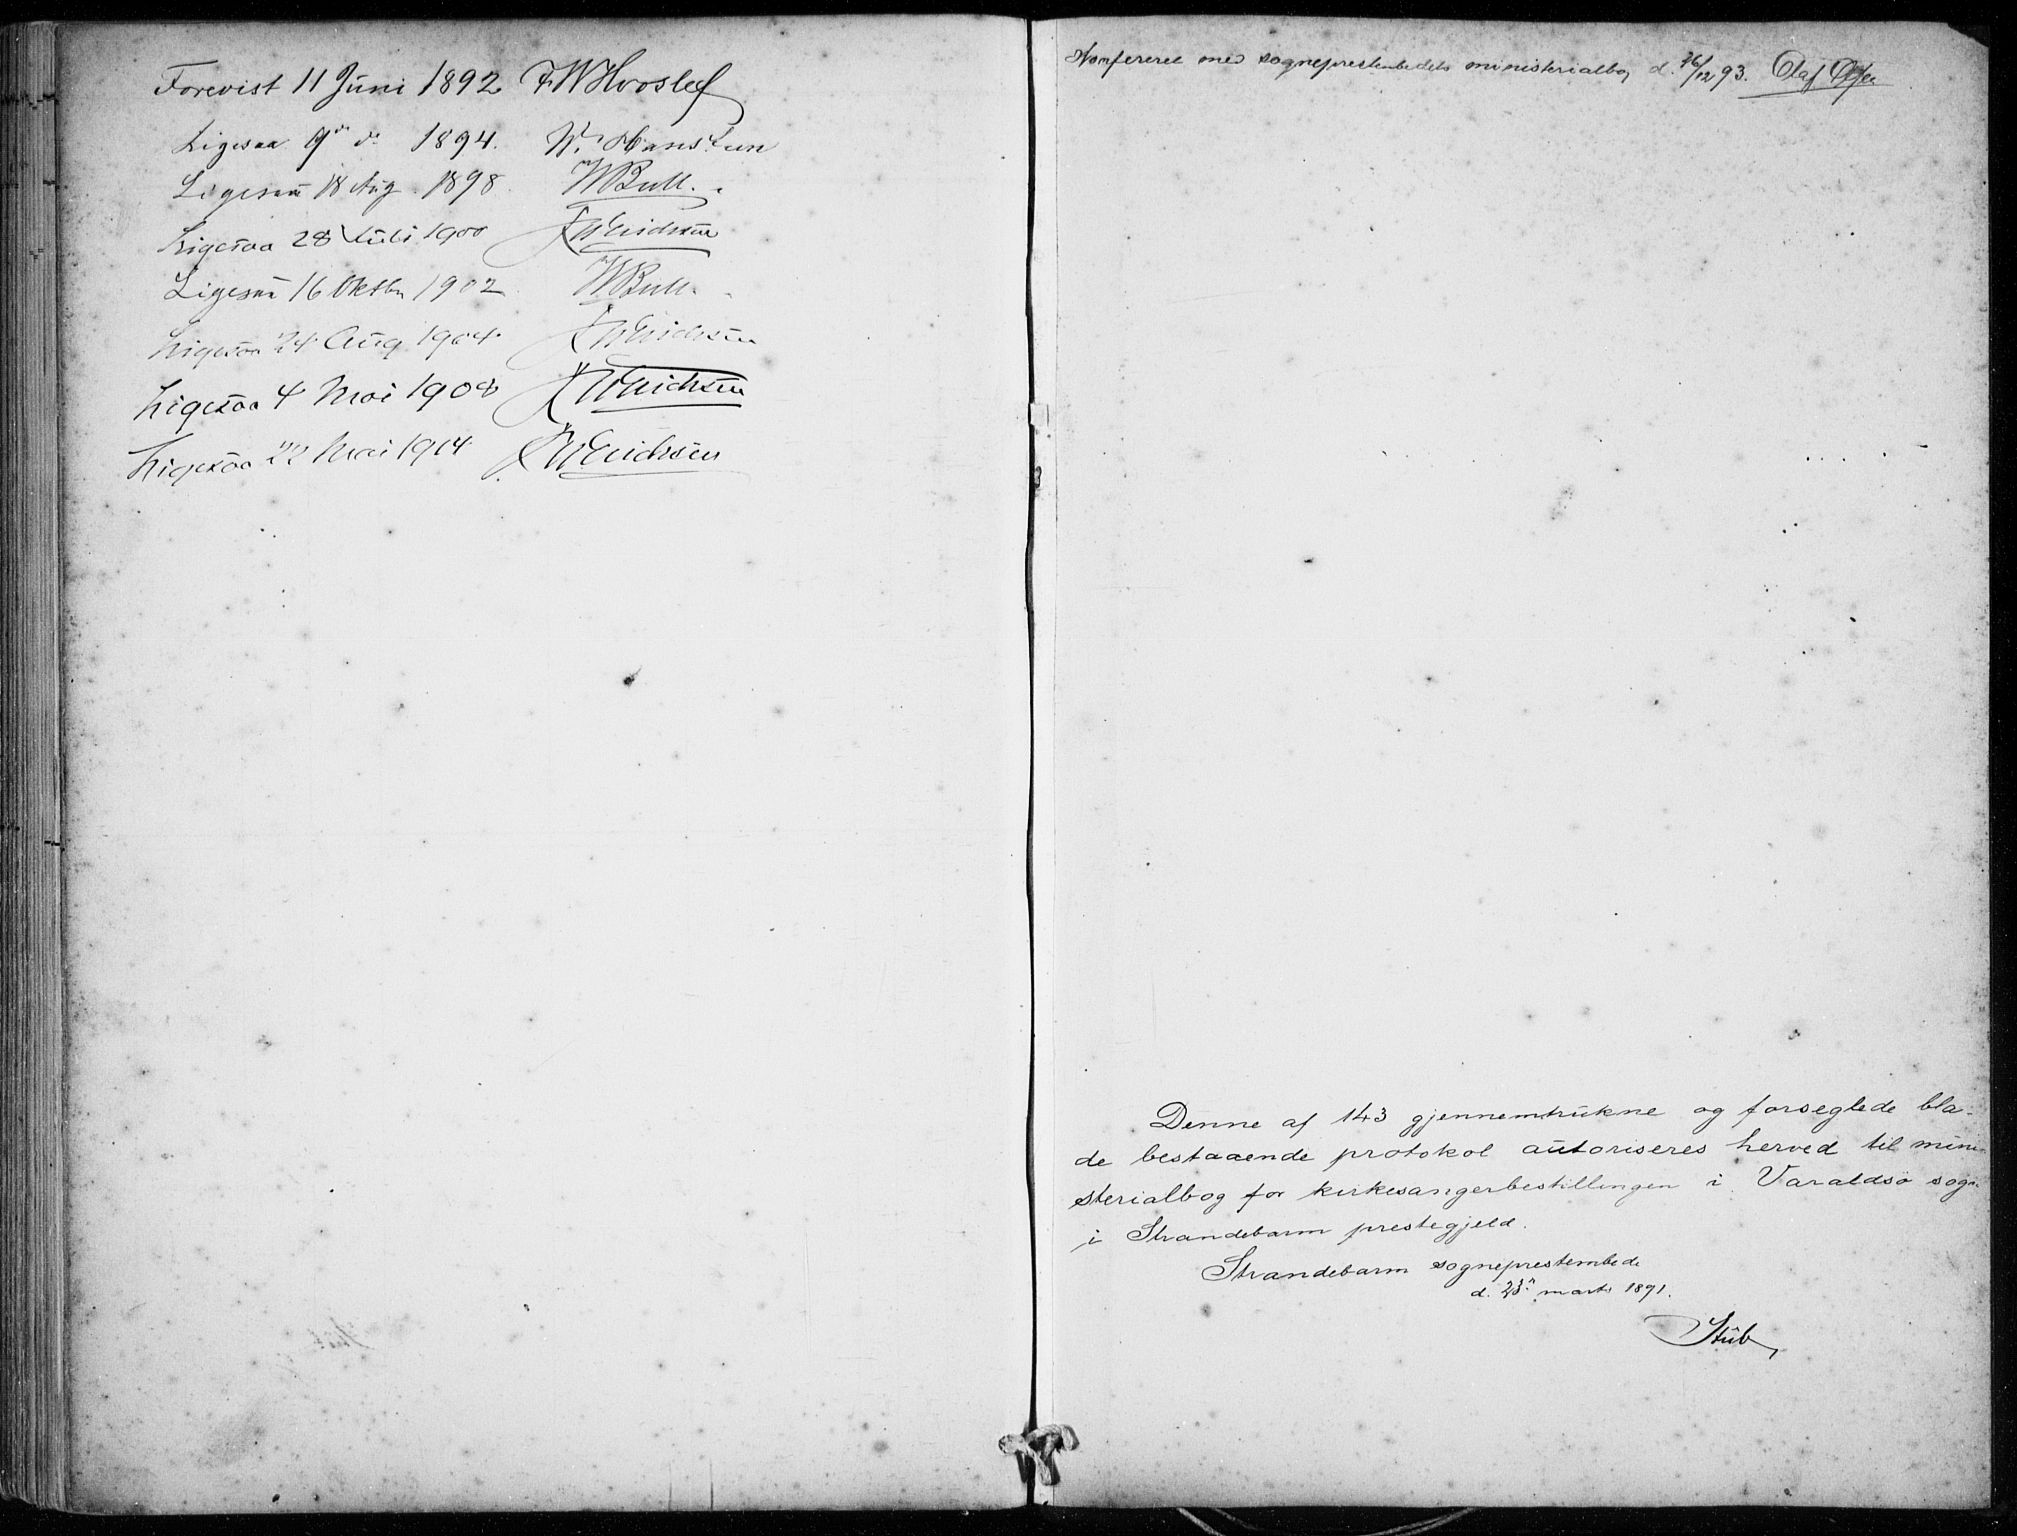 Forevist 11 Juni 1892 F. W. Hvoslef
Ligesaa 9de do 1894. W. Hansteen
Ligesaa 18 Aug. 1898. W Bull.
Ligesaa 28 Juli 1900 J W Erichsen
Ligesaa 16 Oktbr 1902 W Bull.
Ligesaa 24 Aug 1904 J W Erichsen
Ligesaa 4 Mai 1908 J W Erichsen
Ligesaa 22 Mai 1914 J W Erichsen
Konfereret med sogneprestembedets ministerialbog d. 26/12 93. Olaf
Denne af 143 gjennemtrukne og forseglede bla-
de bestaaende protokol autoriseres herved til mini-
sterialbog for kirkesangerbestillingen i Varaldsö sogn
i Strandebarm prestegjeld.
Strandebarm sogneprestembede
d. 23n marts 1891.
Stub